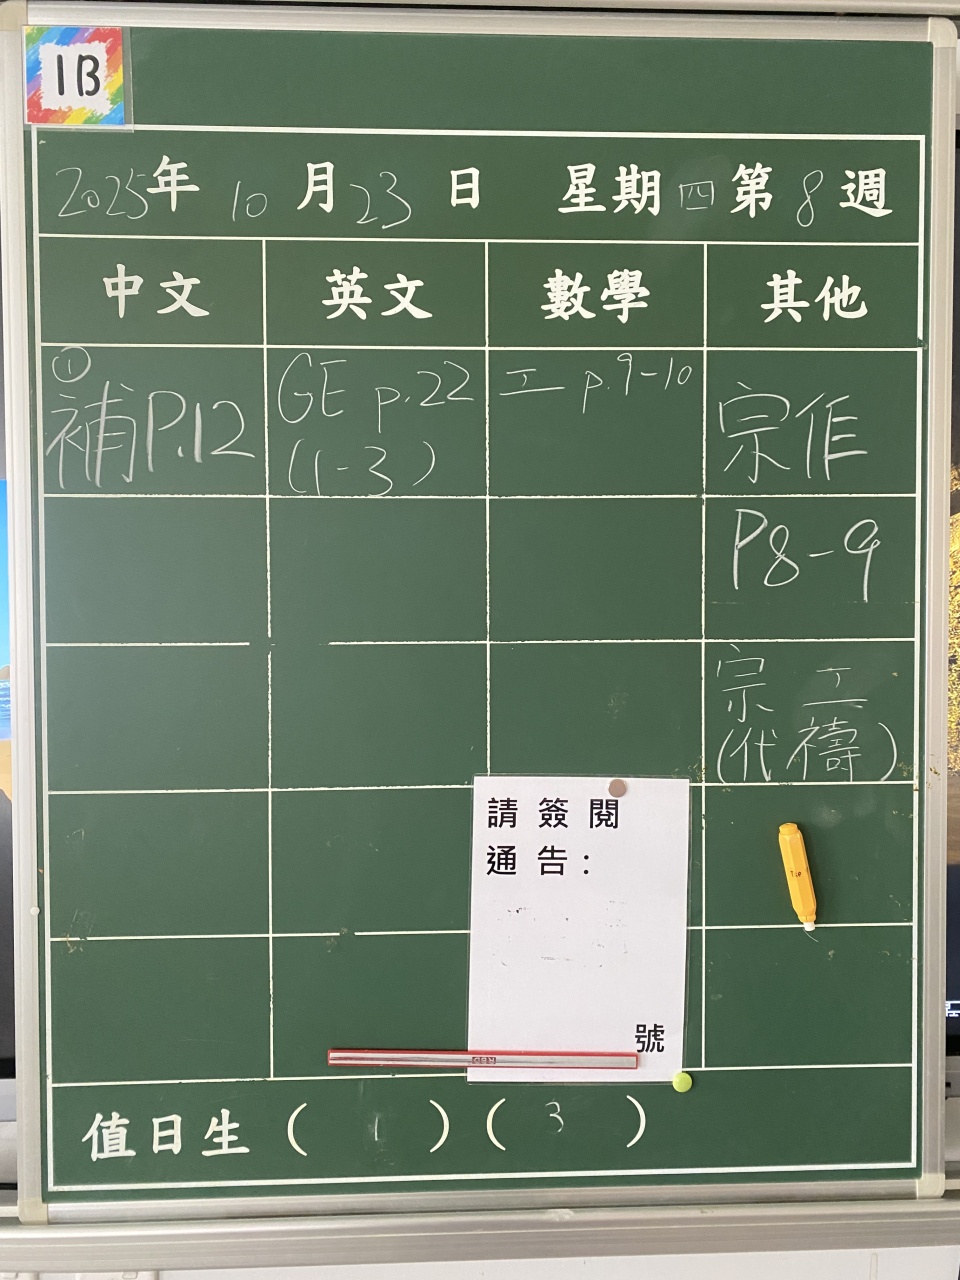 1B
2025年 10 月 23 日 星期 四 第 8 週
中文 英文 數學 其他
① 補P.12
GE p.22
(1-3)
工 p.9-10
宗作
P8-9
宗 工
(代禱)
請簽閱
通告:
號
值日生 ( 1 ) ( 3 )